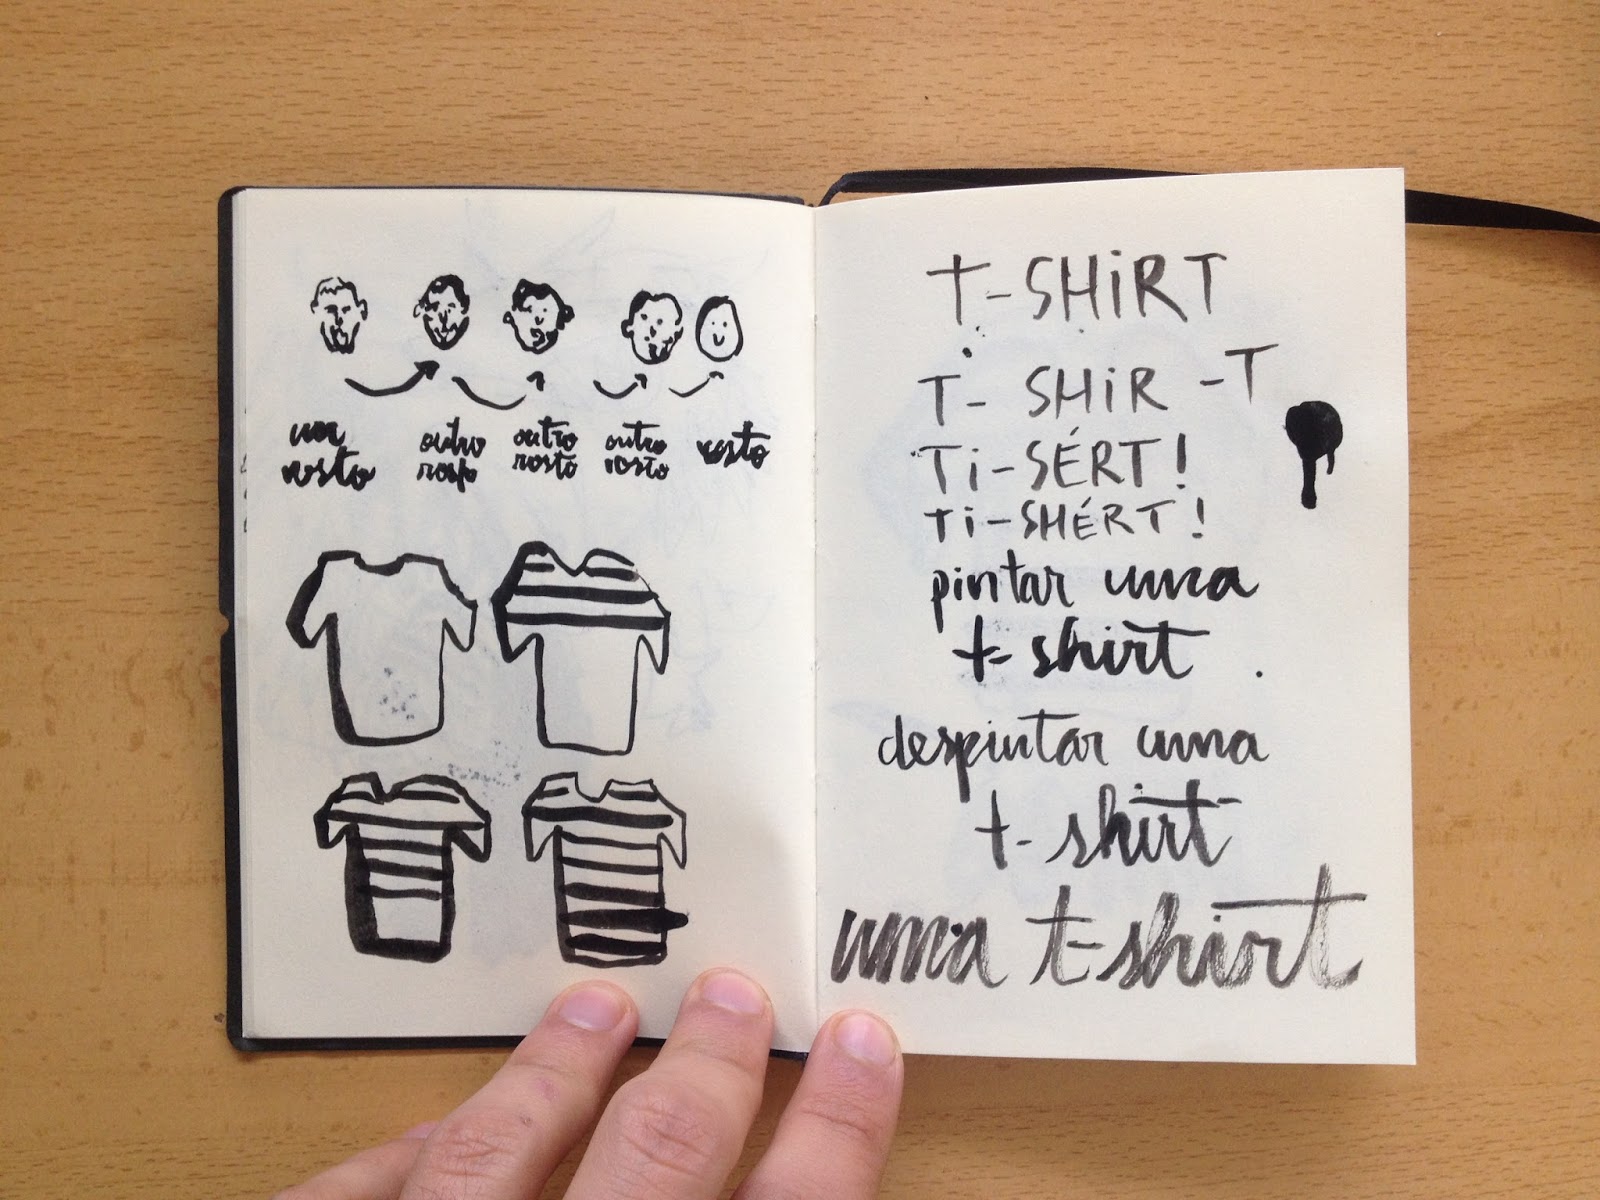 um
rosto
outro
rosto
outro
rosto
outro
rosto
rosto
T-SHiRT
T-SHiR-T
Ti-SÉRT!
Ti-SHÉRT!
pintar uma
t-shirt.
despintar uma
t-shirt
uma t-shirt